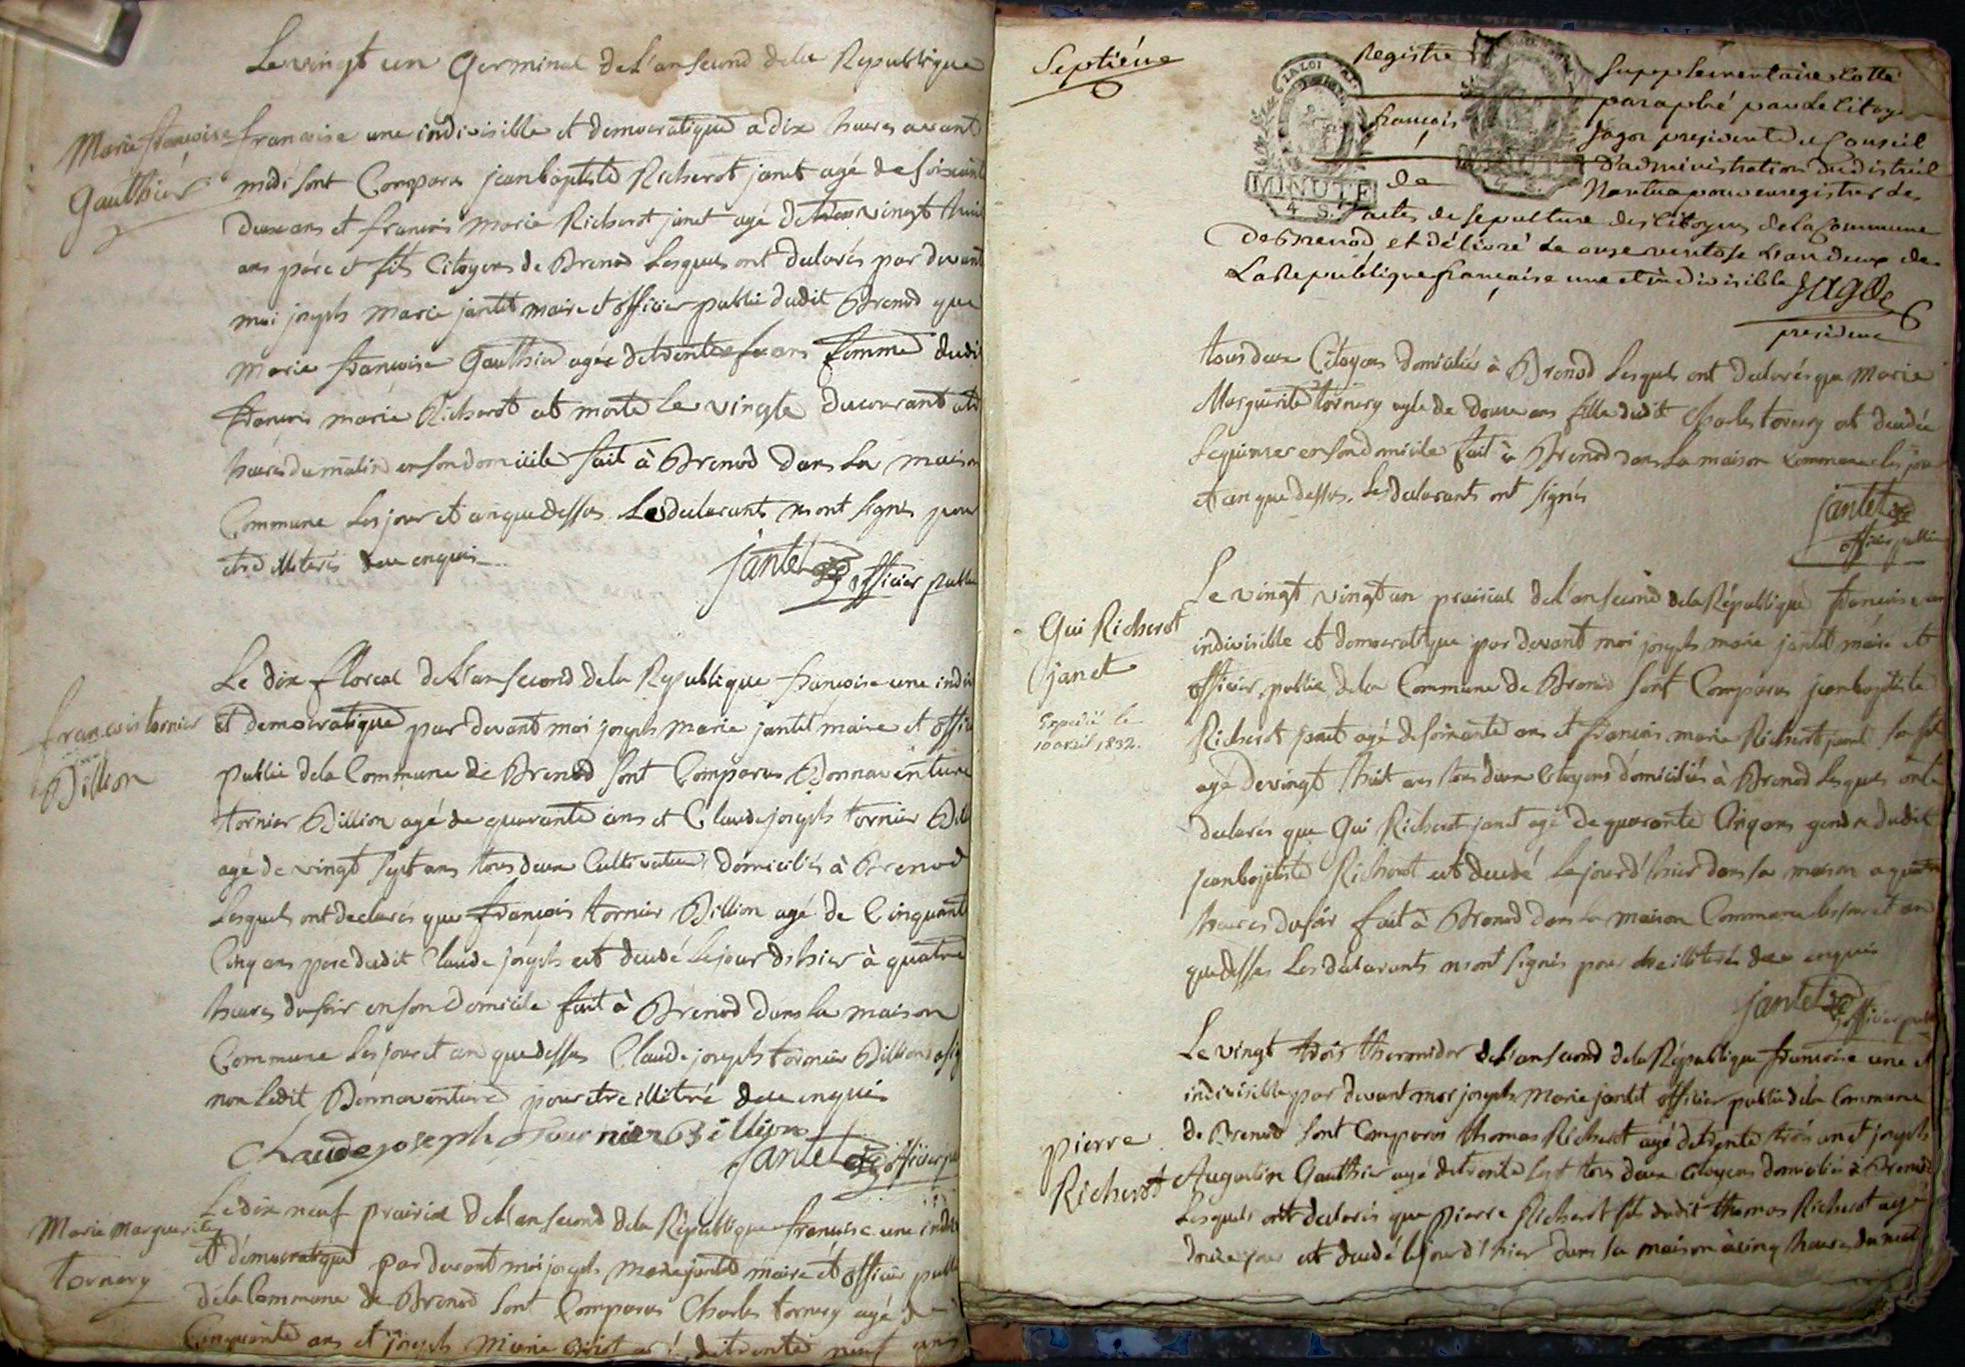 Le vingt un Germinal de l'an second de la Republique
Marie francoise
Gauthier
francoise une indivisible et democratique a dix heures avant
midi sont Comparus jeanbaptiste Richerot janet agé de soixante
deux ans et francois Marie Richerot janet agé de vingt huit
ans père et fils Citoyens de Brenod Lesquels ont declarés par devant
moi joseph Marie jantet maire et officier public dudit Brenod que
Marie francoise Gauthier agée de trente ans femme dudit
francois marie Richerot est morte le vingte du courant
heures du matin en son domicile fait à Brenod dans la maison
Commune les jour et an que dessus Les declarants n'ont signés pour
etre illiterés de ce enquis
jantet officier public
francois tornier
Billion
Le dix floreal de l'an second de la Republique francoise une indivi
et democratique par devant moi joseph Marie jantet maire et offici
public de la Commune de Brenod sont Comparus Bonnaventure
tornier Billion agé de quarante ans et Claude joseph tornier Bill
agé de vingt sept ans tous deux Cultivateurs domiciliés à Brenod
Lesquels ont declarés que françois tornier Billion agé de Cinquante
Cinq ans père dudit Claude joseph est decedé le jour d'hier à quatre
heures du soir en son domicile fait à Brenod dans la maison
Commune les jour et an que dessus Claude joseph tornier Billion a sig
non ledit Bonnaventure pour etre illitéré de ce enquis
Claude joseph Tournier Billion
jantet officier pu
Marie Marguerite
tornery
Le dix neuf prairial de l'an second de la République francoise une indiv
et démocratique par devant moi joseph Marie jantet maire et officier publi
de la Commune de Brenod sont Comparus Charles tornery agé de
Cinquante ans et joseph Marie agé de trente neuf ans
Septiéme
Registre
supplementaire Cotté
LA LOI
paraphé par le Citoy
francois
Jagot president du Conseil
d'administration du district
MINUTE
de
Nantua pour enregistrer les
4 S.
actes de sepulture des Citoyens de la Commune
de Brenod et délivré le onze ventose L'an deux de
La Republique francaise une et indivisible JAGOT
president
tous deux Citoyens domiciliés à Brenod Lesquels ont declarés que Marie
Marguerite tornery agée de douze ans fille dudit Charles tornery est decedée
en son domicile fait à Brenod dans la maison Commune les jour
et an que dessus. Les declarants ont signés
jantet
officier public
Gui Richerot
janet
Expedié le
10 avril 1832.
Le vingt vingt un prairial de l'an second de la République francoise une
indivisible et democratique par devant moi joseph marie jantet maire et
officier public de la Commune de Brenod sont Comparus jeanbaptiste
Richerot janet agé de soixante ans et francois marie Richerot janet son fils
agé de vingt huit ans tous deux Citoyens domiciliés à Brenod Lesquels ont
declarés que Gui Richerot janet agé de quarante Cinq ans gendre dudit
jeanbaptiste Richerot est decedé le jour d'hier dans sa maison a quatre
heures du soir fait à Brenod dans la maison Commune les jour et an
que dessus Les declarants n'ont signés pour etre illiterés de ce enquis
jantet
officier public
pierre
Richerot
Le vingt trois thermidor de l'an second de la République francoise une et
indivisible par devant moi joseph Marie jantet officier public de la Commune
de Brenod sont Comparus thomas Richerot agé de trente trois ans et joseph
Augustin Gauthier agé de trente sept tous deux Citoyens domiciliés à Brenod
Lesquels ont declarés que Pierre Richerot fils dudit thomas Richerot agé
douze jour est decedé le jour d'hier dans sa maison à cinq heures du matin